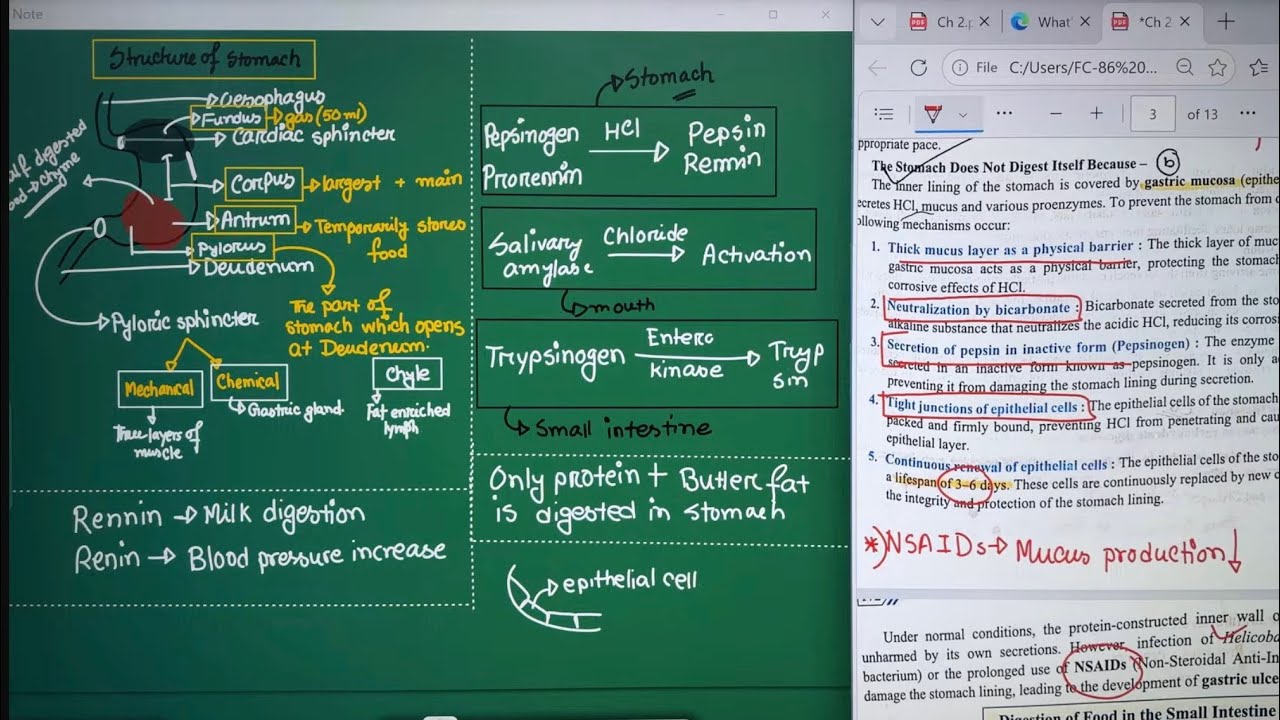 Note
Structure of Stomach
Oesophagus
Fundus → gas (50 ml)
Cardiac sphincter
half digested
food → chyme
Corpus → largest + main
Antrum → Temporarily stores
food
Pylorus
Deudenum
The part of
stomach which opens
at Deudenum.
Pyloric sphincter
Mechanical
Chemical
Gastric gland.
Three layers of
muscle
Chyle
Fat enriched
lymph
Rennin → Milk digestion
Renin → Blood pressure increase
Stomach
Pepsinogen HCl Pepsin
Prorennin Rennin
Salivary Chloride Activation
amylase
mouth
Trypsinogen Entero Tryp
kinase sin
Small intestine
Only protein + Butter fat
is digested in stomach
epithelial cell
Ch 2.p
What'
*Ch 2
File C:/Users/FC-86%20...
3 of 13
ppropriate pace.
The Stomach Does Not Digest Itself Because – b
The inner lining of the stomach is covered by gastric mucosa (epithe
ecretes HCl, mucus and various proenzymes. To prevent the stomach from
ollowing mechanisms occur:
1. Thick mucus layer as a physical barrier : The thick layer of muc
gastric mucosa acts as a physical barrier, protecting the stomach
corrosive effects of HCl.
2. Neutralization by bicarbonate : Bicarbonate secreted from the sto
alkaline substance that neutralizes the acidic HCl, reducing its corros
3. Secretion of pepsin in inactive form (Pepsinogen) : The enzyme
secreted in an inactive form known as pepsinogen. It is only a
preventing it from damaging the stomach lining during secretion.
4. Tight junctions of epithelial cells : The epithelial cells of the stomach
packed and firmly bound, preventing HCl from penetrating and cau
epithelial layer.
5. Continuous renewal of epithelial cells : The epithelial cells of the sto
a lifespan of 3–6 days. These cells are continuously replaced by new
the integrity and protection of the stomach lining.
*) NSAIDs → Mucus production ↓
Under normal conditions, the protein-constructed inner wall o
unharmed by its own secretions. However, infection of Helicoba
bacterium) or the prolonged use of NSAIDs (Non-Steroidal Anti-In
damage the stomach lining, leading to the development of gastric ulce
Digestion of Food in the Small Intestine